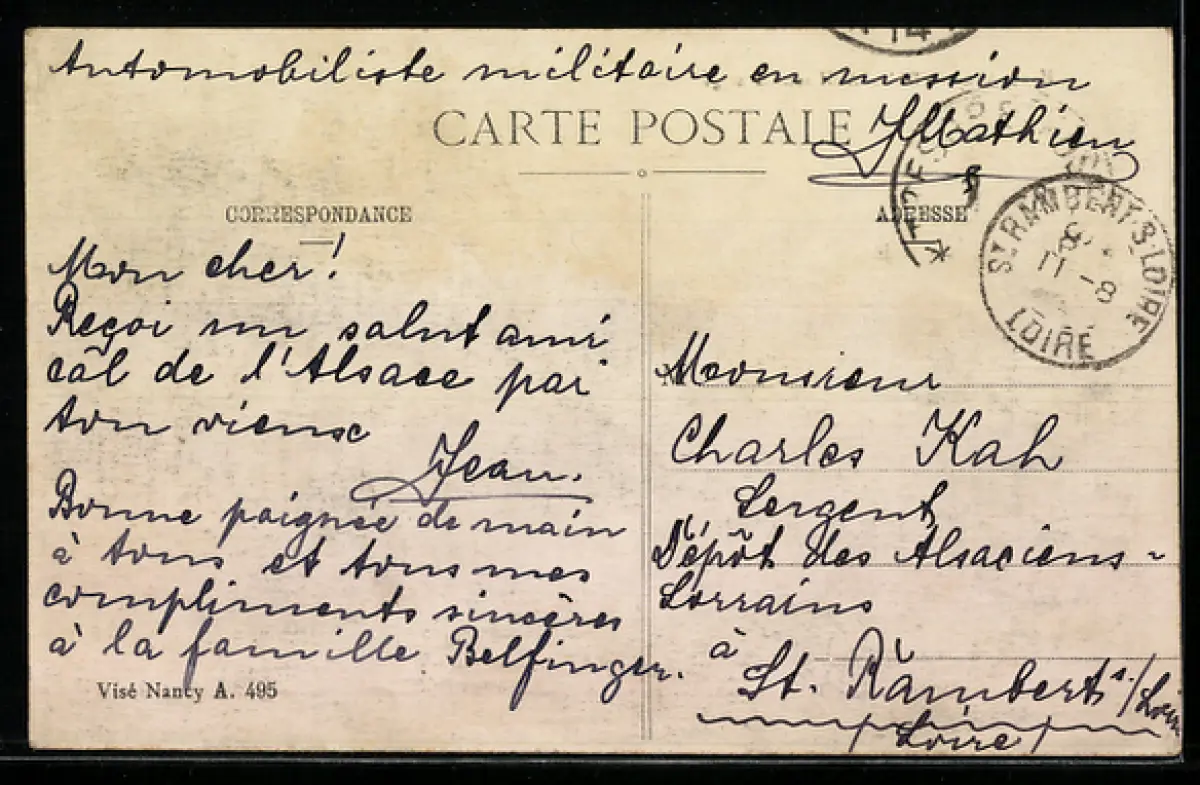 Automobiliste militaire en mission
J Mathieu
CARTE POSTALE
CORRESPONDANCE
ADRESSE
Mon cher!
Reçoi un salut ami
câl de l'Alsace par
ton vieux
Jean.
Bonne poignée de main
à tous et tous mes
compliments sincères
à la famille Belfinger.
Visé Nancy A. 495
ST RAMBERT-S-LOIRE
11-8
LOIRE
Monsieur
Charles Kah
Sergent
Dépôt des Alsaciens-
Lorrains
à
St. Rambert s/Loire
Loire